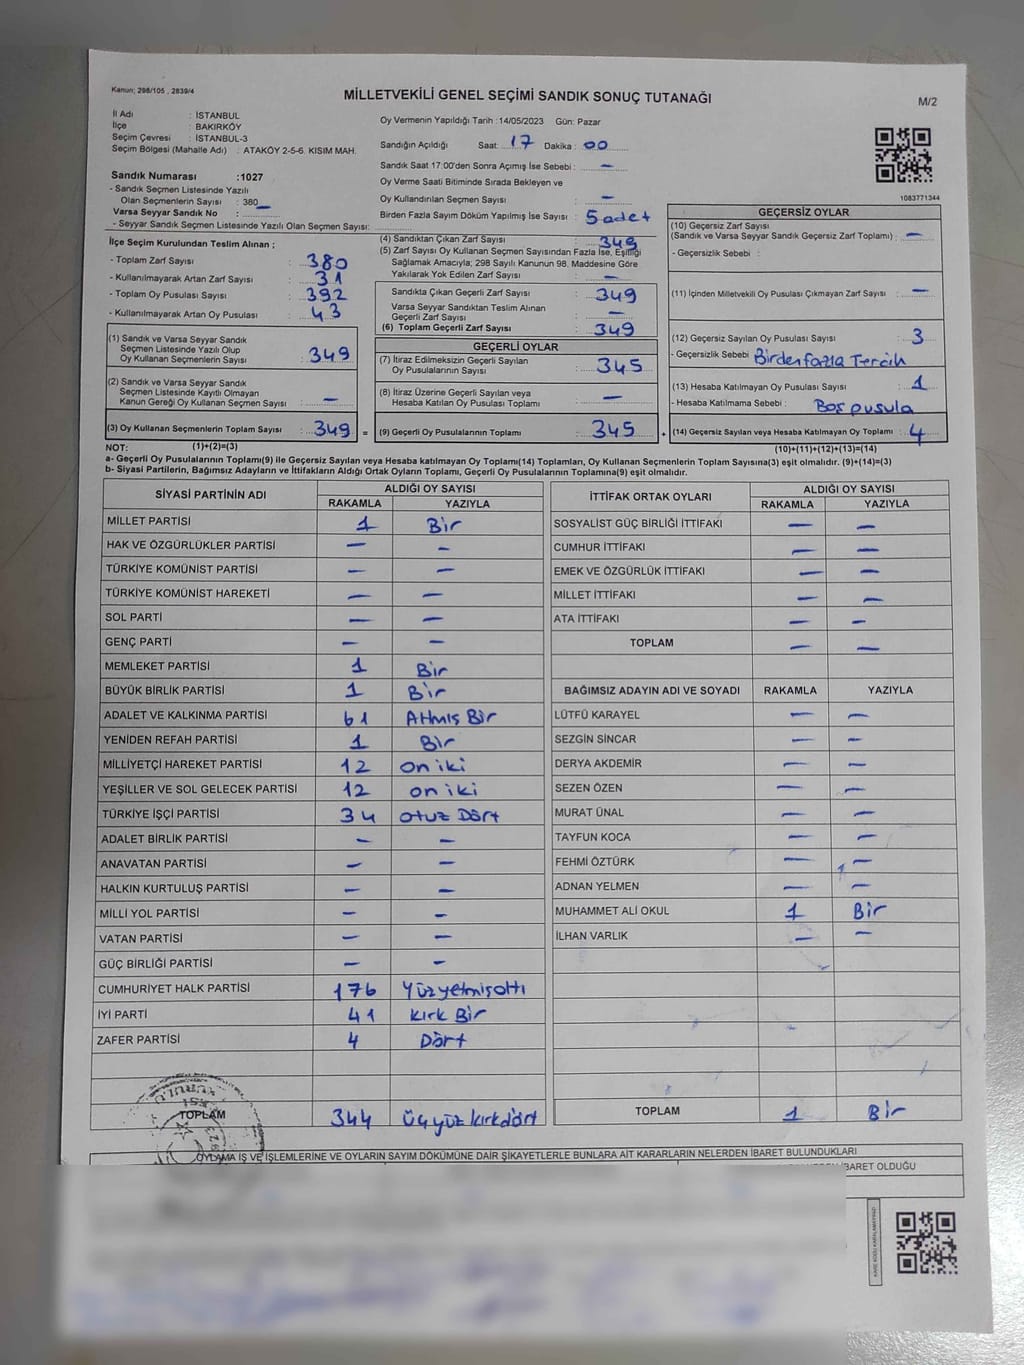 Kanun; 298/105 , 2839/4
MİLLETVEKİLİ GENEL SEÇİMİ SANDIK SONUÇ TUTANAĞI
M/2
İl Adı : İSTANBUL
İlçe : BAKIRKÖY
Seçim Çevresi : İSTANBUL-3
Seçim Bölgesi (Mahalle Adı) : ATAKÖY 2-5-6. KISIM MAH.
Sandık Numarası :1027
- Sandık Seçmen Listesinde Yazılı
Olan Seçmenlerin Sayısı : 380
Varsa Seyyar Sandık No :
- Seyyar Sandık Seçmen Listesinde Yazılı Olan Seçmen Sayısı:
Oy Vermenin Yapıldığı Tarih :14/05/2023 Gün: Pazar
Sandığın Açıldığı Saat: 17 Dakika : 00
Sandık Saat 17:00'den Sonra Açımış İse Sebebi : —
Oy Verme Saati Bitiminde Sırada Bekleyen ve
Oy Kullandırılan Seçmen Sayısı : —
Birden Fazla Sayım Döküm Yapılmış İse Sayısı : 5 adet
1083771344
İlçe Seçim Kurulundan Teslim Alınan ;
- Toplam Zarf Sayısı : 380
- Kullanılmayarak Artan Zarf Sayısı : 31
- Toplam Oy Pusulası Sayısı : 392
- Kullanılmayarak Artan Oy Pusulası : 43
(1) Sandık ve Varsa Seyyar Sandık
Seçmen Listesinde Yazılı Olup
Oy Kullanan Seçmenlerin Sayısı : 349
(2) Sandık ve Varsa Seyyar Sandık
Seçmen Listesinde Kayıtlı Olmayan
Kanun Gereği Oy Kullanan Seçmen Sayısı : —
(3) Oy Kullanan Seçmenlerin Toplam Sayısı : 349 =
(4) Sandıktan Çıkan Zarf Sayısı : 349
(5) Zarf Sayısı Oy Kullanan Seçmen Sayısından Fazla İse, Eşitliği
Sağlamak Amacıyla; 298 Sayılı Kanunun 98. Maddesine Göre
Yakılarak Yok Edilen Zarf Sayısı : —
Sandıkta Çıkan Geçerli Zarf Sayısı : 349
Varsa Seyyar Sandıktan Teslim Alınan
Geçerli Zarf Sayısı : —
(6) Toplam Geçerli Zarf Sayısı : 349
GEÇERLİ OYLAR
(7) İtiraz Edilmeksizin Geçerli Sayılan
Oy Pusulalarının Sayısı : 345
(8) İtiraz Üzerine Geçerli Sayılan veya
Hesaba Katılan Oy Pusulası Toplamı : —
(9) Geçerli Oy Pusulalarının Toplamı : 345 +
GEÇERSİZ OYLAR
(10) Geçersiz Zarf Sayısı
(Sandık ve Varsa Seyyar Sandık Geçersiz Zarf Toplamı) : —
- Geçersizlik Sebebi :
(11) İçinden Milletvekili Oy Pusulası Çıkmayan Zarf Sayısı : —
(12) Geçersiz Sayılan Oy Pusulası Sayısı : 3
- Geçersizlik Sebebi : Birdenfazla Tercih
(13) Hesaba Katılmayan Oy Pusulası Sayısı : 1
- Hesaba Katılmama Sebebi : Boş pusula
(14) Geçersiz Sayılan veya Hesaba Katılmayan Oy Toplamı : 4
NOT: (1)+(2)=(3) (10)+(11)+(12)+(13)=(14)
a- Geçerli Oy Pusulalarının Toplamı(9) ile Geçersiz Sayılan veya Hesaba katılmayan Oy Toplamı(14) Toplamları, Oy Kullanan Seçmenlerin Toplam Sayısına(3) eşit olmalıdır. (9)+(14)=(3)
b- Siyasi Partilerin, Bağımsız Adayların ve İttifakların Aldığı Ortak Oyların Toplamı, Geçerli Oy Pusulalarının Toplamına(9) eşit olmalıdır.
SİYASİ PARTİNİN ADI ALDIĞI OY SAYISI
RAKAMLA YAZIYLA
MİLLET PARTİSİ 1 Bir
HAK VE ÖZGÜRLÜKLER PARTİSİ — —
TÜRKİYE KOMÜNİST PARTİSİ — —
TÜRKİYE KOMÜNİST HAREKETİ — —
SOL PARTİ — —
GENÇ PARTİ — —
MEMLEKET PARTİSİ 1 Bir
BÜYÜK BİRLİK PARTİSİ 1 Bir
ADALET VE KALKINMA PARTİSİ 61 Atmış Bir
YENİDEN REFAH PARTİSİ 1 Bir
MİLLİYETÇİ HAREKET PARTİSİ 12 on iki
YEŞİLLER VE SOL GELECEK PARTİSİ 12 on iki
TÜRKİYE İŞÇİ PARTİSİ 34 otuz Dört
ADALET BİRLİK PARTİSİ — —
ANAVATAN PARTİSİ — —
HALKIN KURTULUŞ PARTİSİ — —
MİLLİ YOL PARTİSİ — —
VATAN PARTİSİ — —
GÜÇ BİRLİĞİ PARTİSİ — —
CUMHURİYET HALK PARTİSİ 176 Yüzyetmişaltı
İYİ PARTİ 41 Kırk Bir
ZAFER PARTİSİ 4 Dört
TOPLAM 344 üçyüz kırkdört
İTTİFAK ORTAK OYLARI ALDIĞI OY SAYISI
RAKAMLA YAZIYLA
SOSYALİST GÜÇ BİRLİĞİ İTTİFAKI — —
CUMHUR İTTİFAKI — —
EMEK VE ÖZGÜRLÜK İTTİFAKI — —
MİLLET İTTİFAKI — —
ATA İTTİFAKI — —
TOPLAM — —
BAĞIMSIZ ADAYIN ADI VE SOYADI RAKAMLA YAZIYLA
LÜTFÜ KARAYEL — —
SEZGİN SİNCAR — —
DERYA AKDEMİR — —
SEZEN ÖZEN — —
MURAT ÜNAL — —
TAYFUN KOCA — —
FEHMİ ÖZTÜRK — —
ADNAN YELMEN — —
MUHAMMET ALİ OKUL 1 Bir
İLHAN VARLIK — —
TOPLAM 1 Bir
OYLAMA İŞ VE İŞLEMLERİNE VE OYLARIN SAYIM DÖKÜMÜNE DAİR ŞİKAYETLERLE BUNLARA AİT KARARLARIN NELERDEN İBARET BULUNDUKLARI
İBARET OLDUĞU